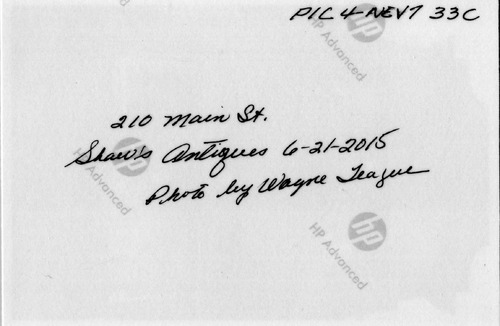 PIC 4-NEV7 33C
210 Main St.
Shaw's Antiques 6-21-2015
Photo by Wayne Teague
hp
HP Advanced
hp
HP Advanced
hp
HP Advanced